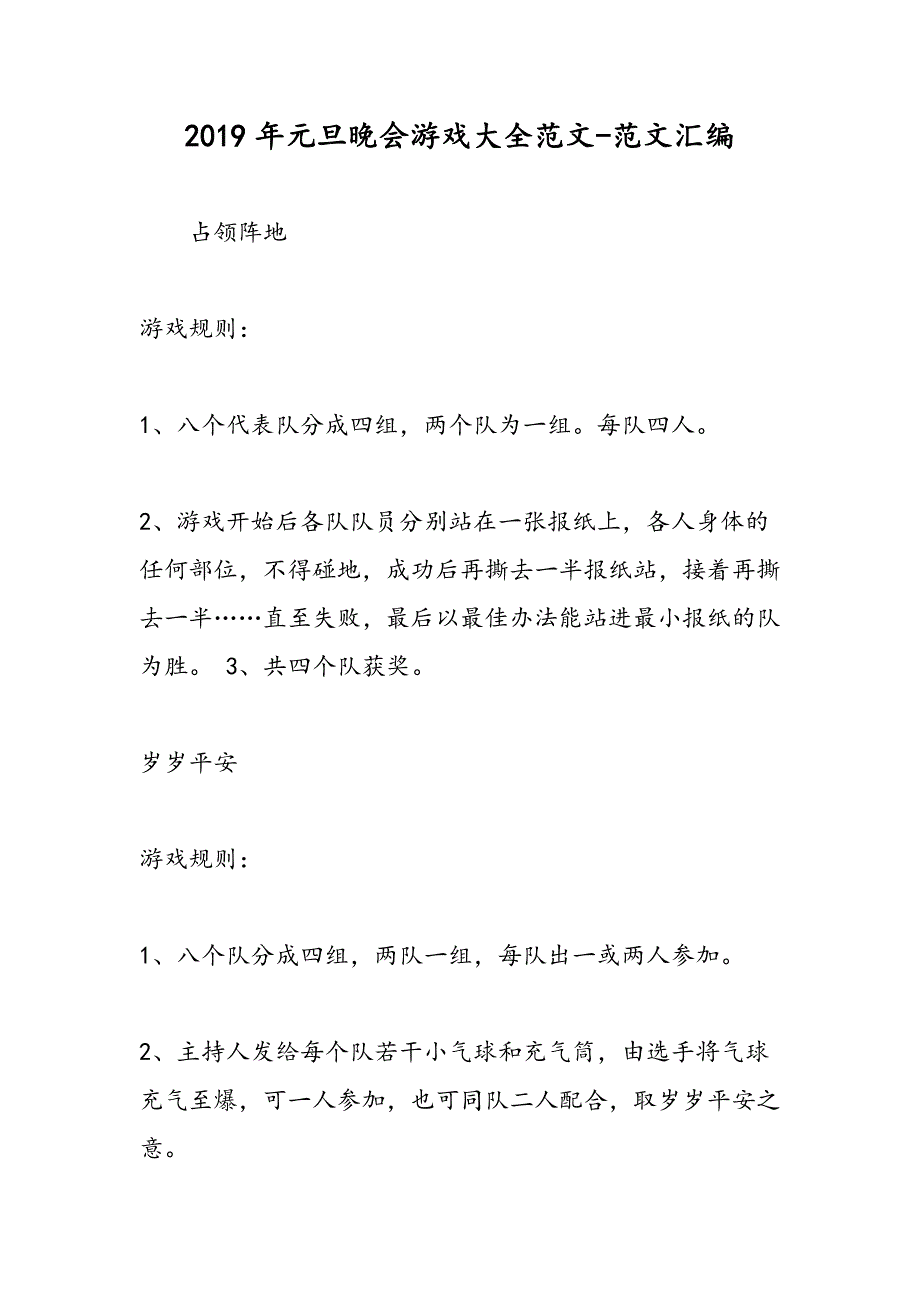 2019 年元旦晚会游戏大全范文-范文汇编
占领阵地
游戏规则：
1、八个代表队分成四组，两个队为一组。每队四人。
2、游戏开始后各队队员分别站在一张报纸上，各人身体的
任何部位，不得碰地，成功后再撕去一半报纸站，接着再撕
去一半……直至失败，最后以最佳办法能站进最小报纸的队
为胜。 3、共四个队获奖。
岁岁平安
游戏规则：
1、八个队分成四组，两队一组，每队出一或两人参加。
2、主持人发给每个队若干小气球和充气筒，由选手将气球
充气至爆，可一人参加，也可同队二人配合，取岁岁平安之
意。